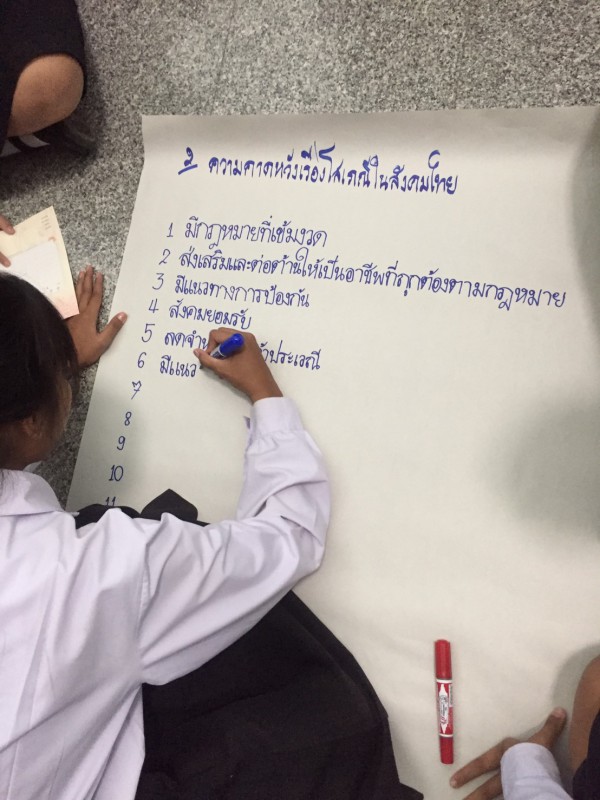 2 ความคาดหวังเรื่องโสเภณีในสังคมไทย
1 มีกฎหมายที่เข้มงวด
2 ส่งเสริมและต่อต้านให้เป็นอาชีพที่ถูกต้องตามกฎหมาย
3 มีแนวทางการป้องกัน
4 สังคมยอมรับ
5 ลดจำ ประเวณี
6 มีแนว
7
8
9
10
11